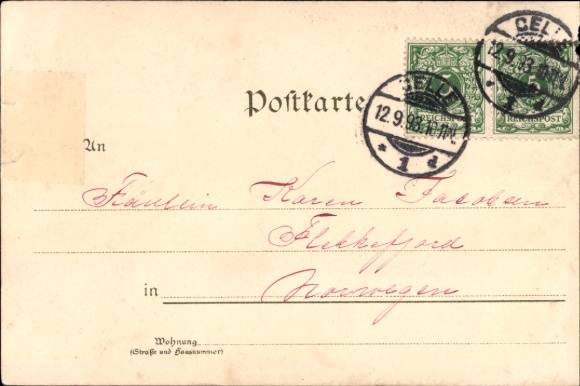 Postkarte
CELLE
12.9.98.10-11V.
* 1 d
CELLE
12.9.98.10-11V.
* 1 d
REICHSPOST
REICHSPOST
An
Fräulein Karen Jacobsen
Flekkefjord
in Norwegen
Wohnung
(Straße und Hausnummer)